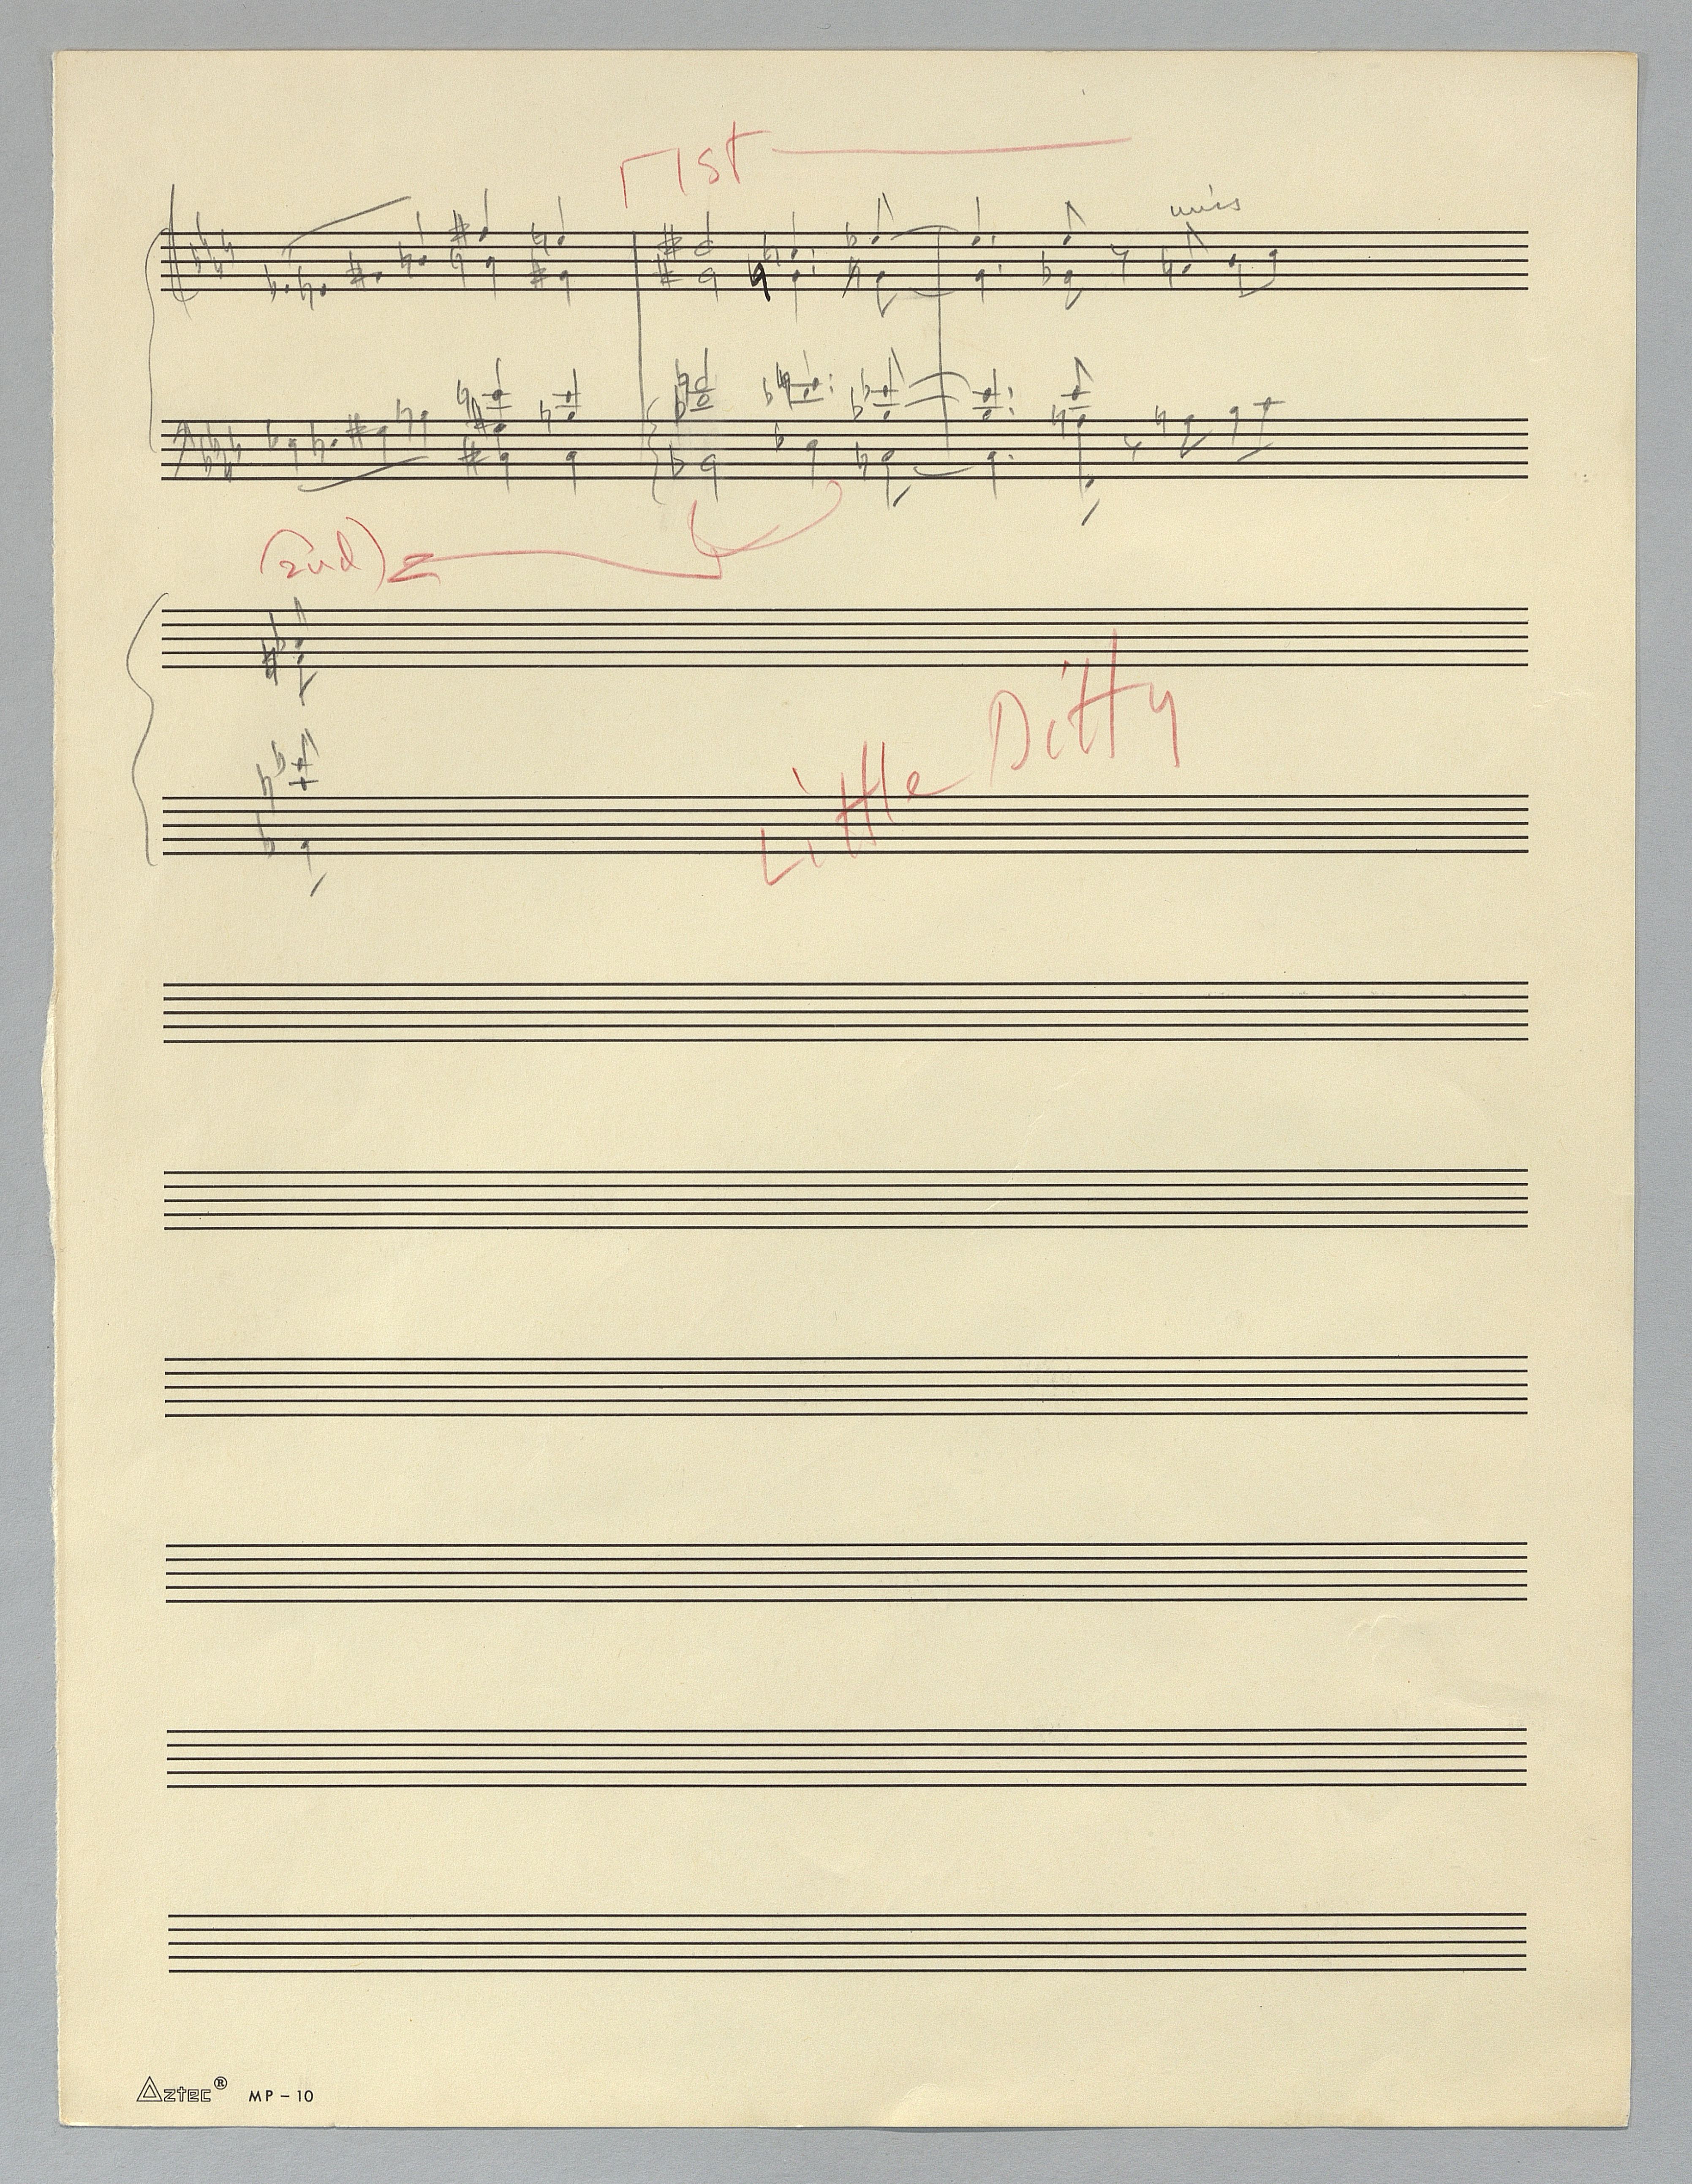 1st
unis
(2nd)
Little Ditty
Aztec® MP-10